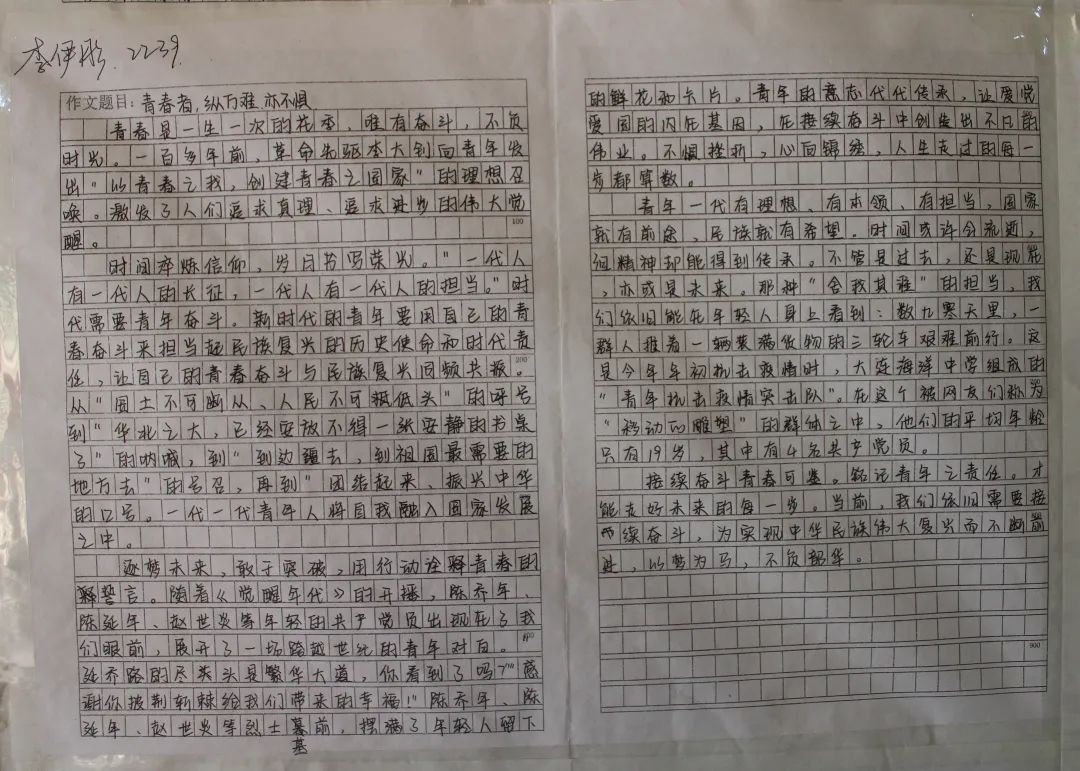 李伊彤. 2239.
作文题目: 青春者,纵万难 亦不惧
青春是一生一次的花季,唯有奋斗,不负
时光。一百多年前,革命先驱李大钊向青年发
出“以青春之我,创建青春之国家”的理想召
唤。激发了人们追求真理、追求进步的伟大觉
100
醒。
时间淬炼信仰,岁月书写荣光。“一代人
有一代人的长征,一代人有一代人的担当。”时
代需要青年奋斗。新时代的青年要用自己的青
春奋斗来担当起民族复兴的历史使命和时代责
200
任,让自己的青春奋斗与民族复兴同频共振。
从“国土不可断从、人民不可低头”的呼号
到“华北之大,已经安放不得一张安静的书桌
了”的呐喊,到“到边疆去,到祖国最需要的
地方去”的号召,再到“团结起来、振兴中华
的口号。一代一代青年人将自我融入国家发展
之中。
逐梦未来,敢于突破,用行动诠释青春的
誓言。随着《觉醒年代》的开播,陈乔年、
陈延年、赵世炎等年轻的共产党员出现在了我
们眼前,展开了一场跨越世纪的青年对白。
400
延乔路的尽头是繁华大道,你看到了吗?”“感
谢你披荆斩棘给我们带来的幸福!”陈乔年、陈
延年、赵世炎等烈士墓前,摆满了年轻人留下
墓
的鲜花和卡片。青年的意志代代传承,让爱党
爱国的内在基因,在接续奋斗中创造出不凡的
伟业。不惧挫折,心向锦绣,人生走过的每一
步都算数。
青年一代有理想、有本领、有担当,国家
就有前途,民族就有希望。时间或许会流逝,
但精神却能得到传承。不管是过去,还是现在
,亦或是未来。那种“舍我其谁”的担当,我
们依旧能在年轻人身上看到:数九寒天里,一
群人推着一辆装满货物的三轮车艰难前行。这
是今年年初抗击疫情时,大连海洋中学组成的
“青年抗击疫情突击队”。在这个被网友们称为
“移动的雕塑”的群体之中,他们的平均年龄
只有19岁,其中有4名共产党员。
接续奋斗青春可鉴。铭记青年之责任。才
能走好未来的每一步。当前,我们依旧需要接
续奋斗,为实现中华民族伟大复兴而不断前
进,以梦为马,不负韶华。
900